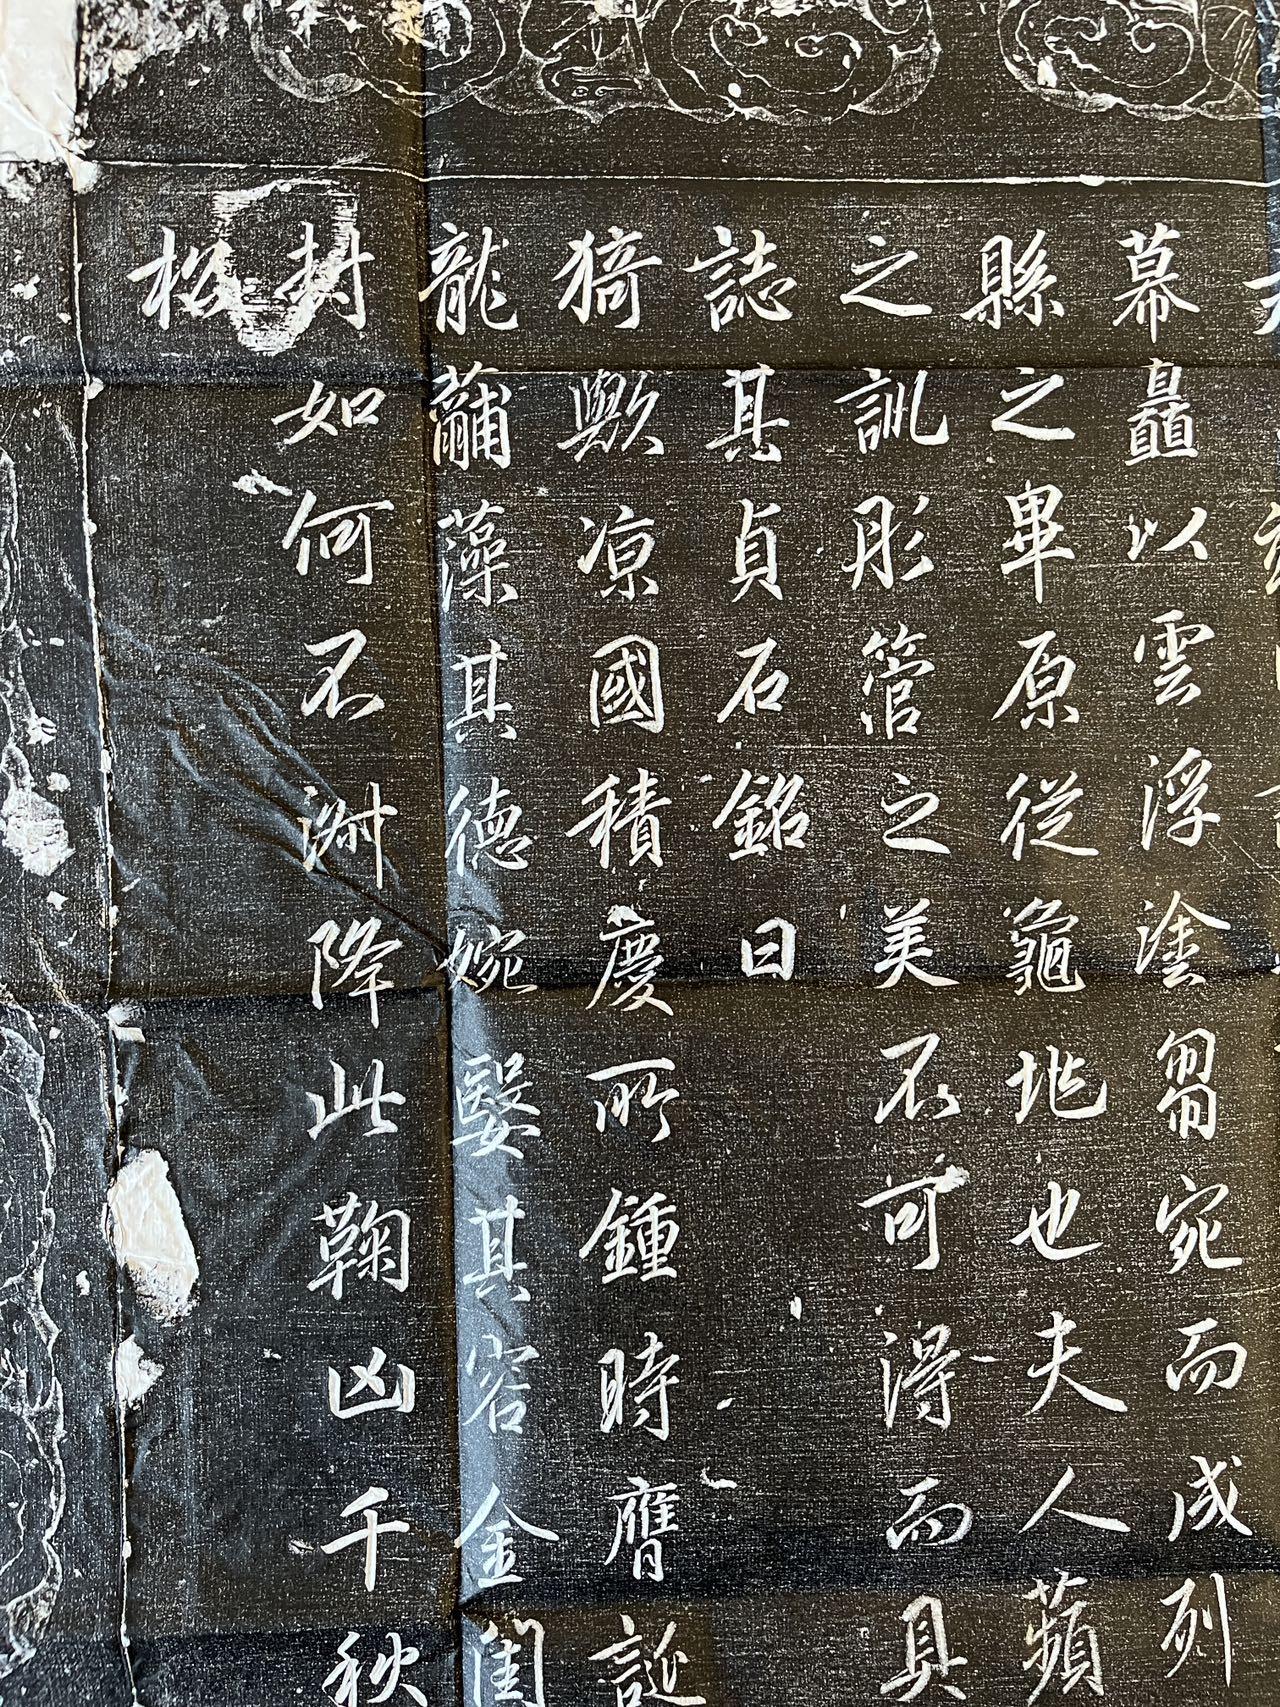 幕矗以雲浮塗芻宛而成列
縣之畢原從龜兆也夫人蘋
之訓彤管之美不可得而具
誌其貞石銘曰
猗歟凉國積慶所鍾時膺誕
龍黼藻其德婉嫕其容金閨
封如何不淑降此鞠凶千秋
松